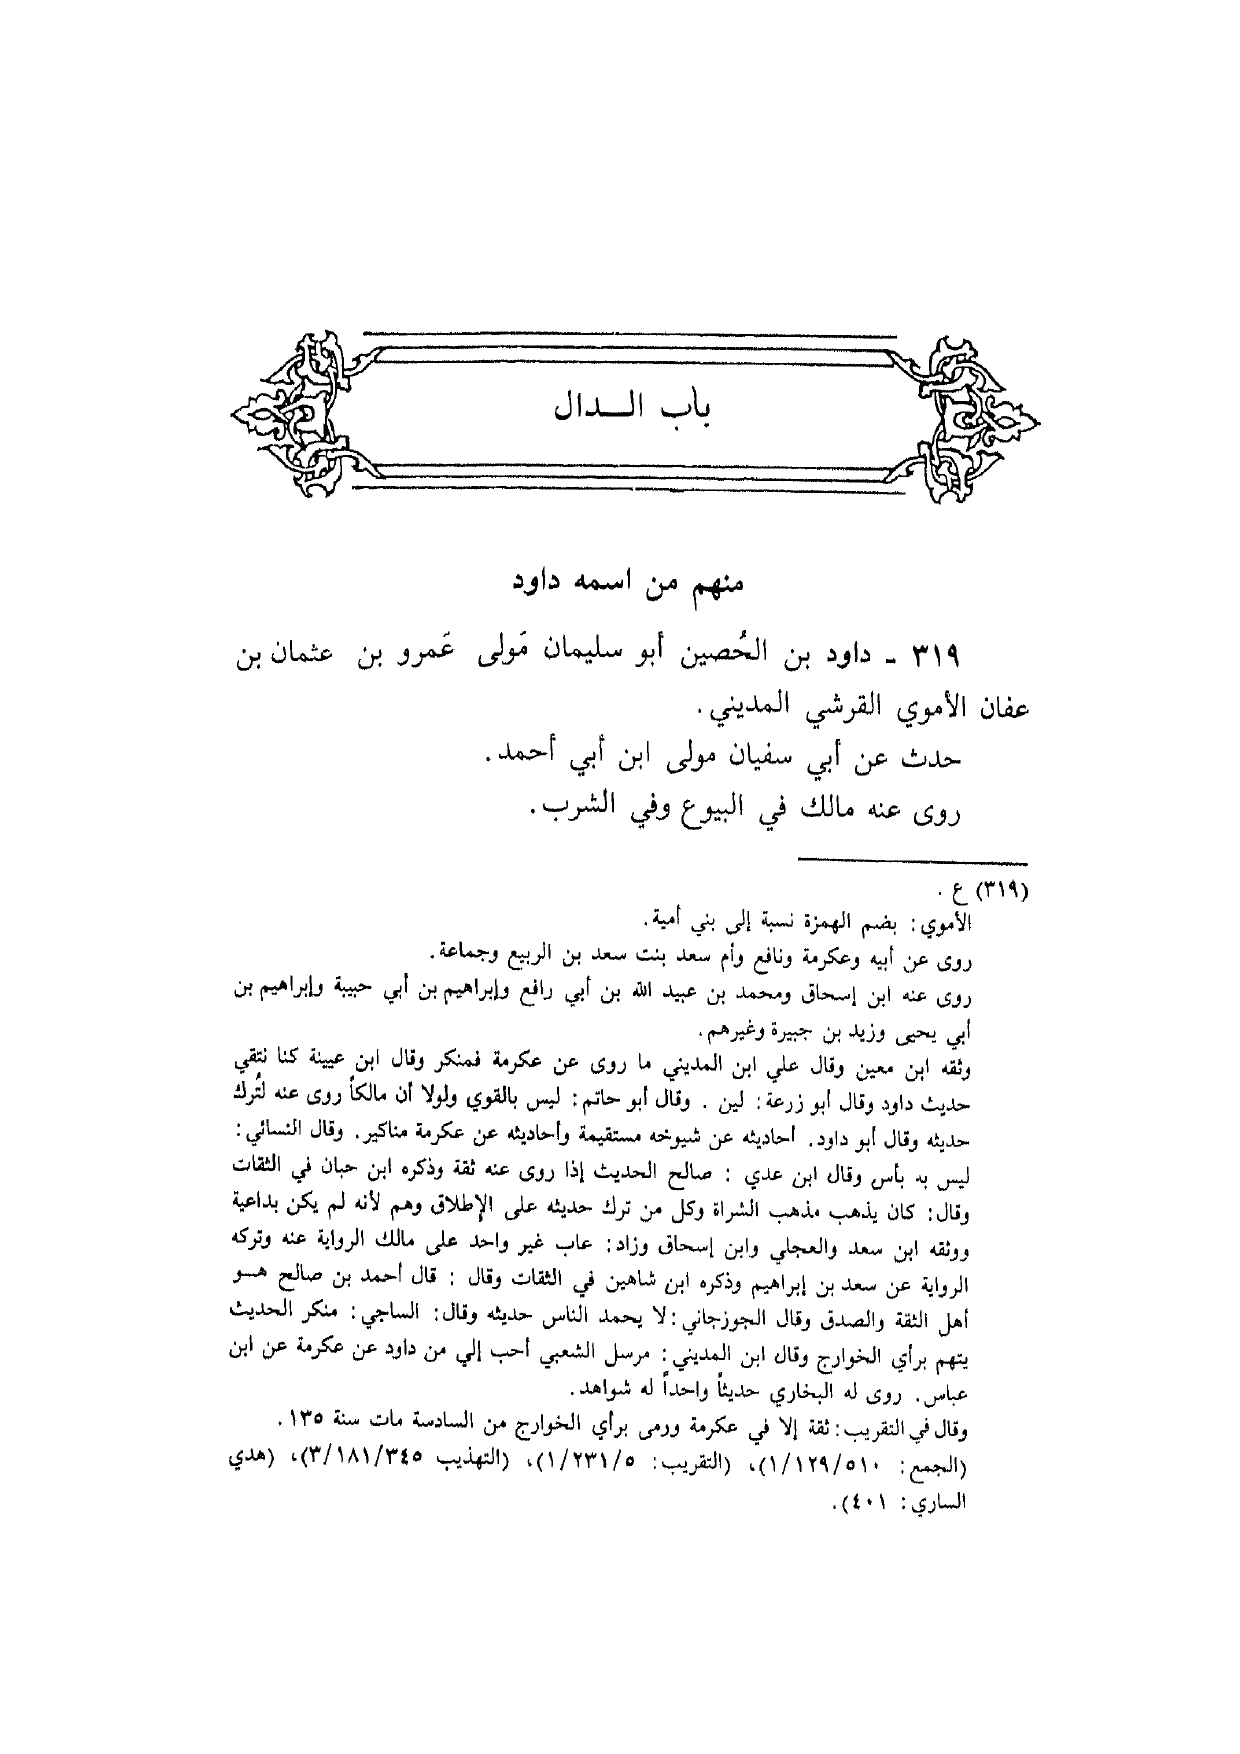 باب الــدال
منهم من اسمه داود
٣١٩ ـ داود بن الحُصين أبو سليمان مَولى عَمرو بن عثمان بن
عفان الأموي القرشي المديني.
حدث عن أبي سفيان مولى ابن أبي أحمد.
روى عنه مالك في البيوع وفي الشرب.
(٣١٩) ع .
الأموي: بضم الهمزة نسبة إلى بني أمية.
روى عن أبيه وعكرمة ونافع وأم سعد بنت سعد بن الربيع وجماعة.
روى عنه ابن إسحاق ومحمد بن عبيد الله بن أبي رافع وإبراهيم بن أبي حبيبة وإبراهيم بن
أبي يحيى وزيد بن جبيرة وغيرهم.
وثقه ابن معين وقال علي ابن المديني ما روى عن عكرمة فمنكر وقال ابن عيينة كنا نتقي
حديث داود وقال أبو زرعة: لين . وقال أبو حاتم: ليس بالقوي ولولا أن مالكاً روى عنه لتُرك
حديثه وقال أبو داود. أحاديثه عن شيوخه مستقيمة وأحاديثه عن عكرمة مناكير. وقال النسائي:
ليس به بأس وقال ابن عدي : صالح الحديث إذا روى عنه ثقة وذكره ابن حبان في الثقات
وقال: كان يذهب مذهب الشراة وكل من ترك حديثه على الإطلاق وهم لأنه لم يكن بداعية
ووثقه ابن سعد والعجلي وابن إسحاق وزاد: عاب غير واحد على مالك الرواية عنه وتركه
الرواية عن سعد بن إبراهيم وذكره ابن شاهين في الثقات وقال : قال أحمد بن صالح هــو
أهل الثقة والصدق وقال الجوزجاني: لا يحمد الناس حديثه وقال: الساجي: منكر الحديث
يتهم برأي الخوارج وقال ابن المديني: مرسل الشعبي أحب إلي من داود عن عكرمة عن ابن
عباس. روى له البخاري حديثاً واحداً له شواهد.
وقال في التقريب: ثقة إلا في عكرمة ورمى برأي الخوارج من السادسة مات سنة ١٣٥.
(الجمع: ١/١٢٩/٥١٠)، (التقريب: ١/٢٣١/٥)، (التهذيب ٣/١٨١/٣٤٥)، (هدي
الساري: ٤٠١).